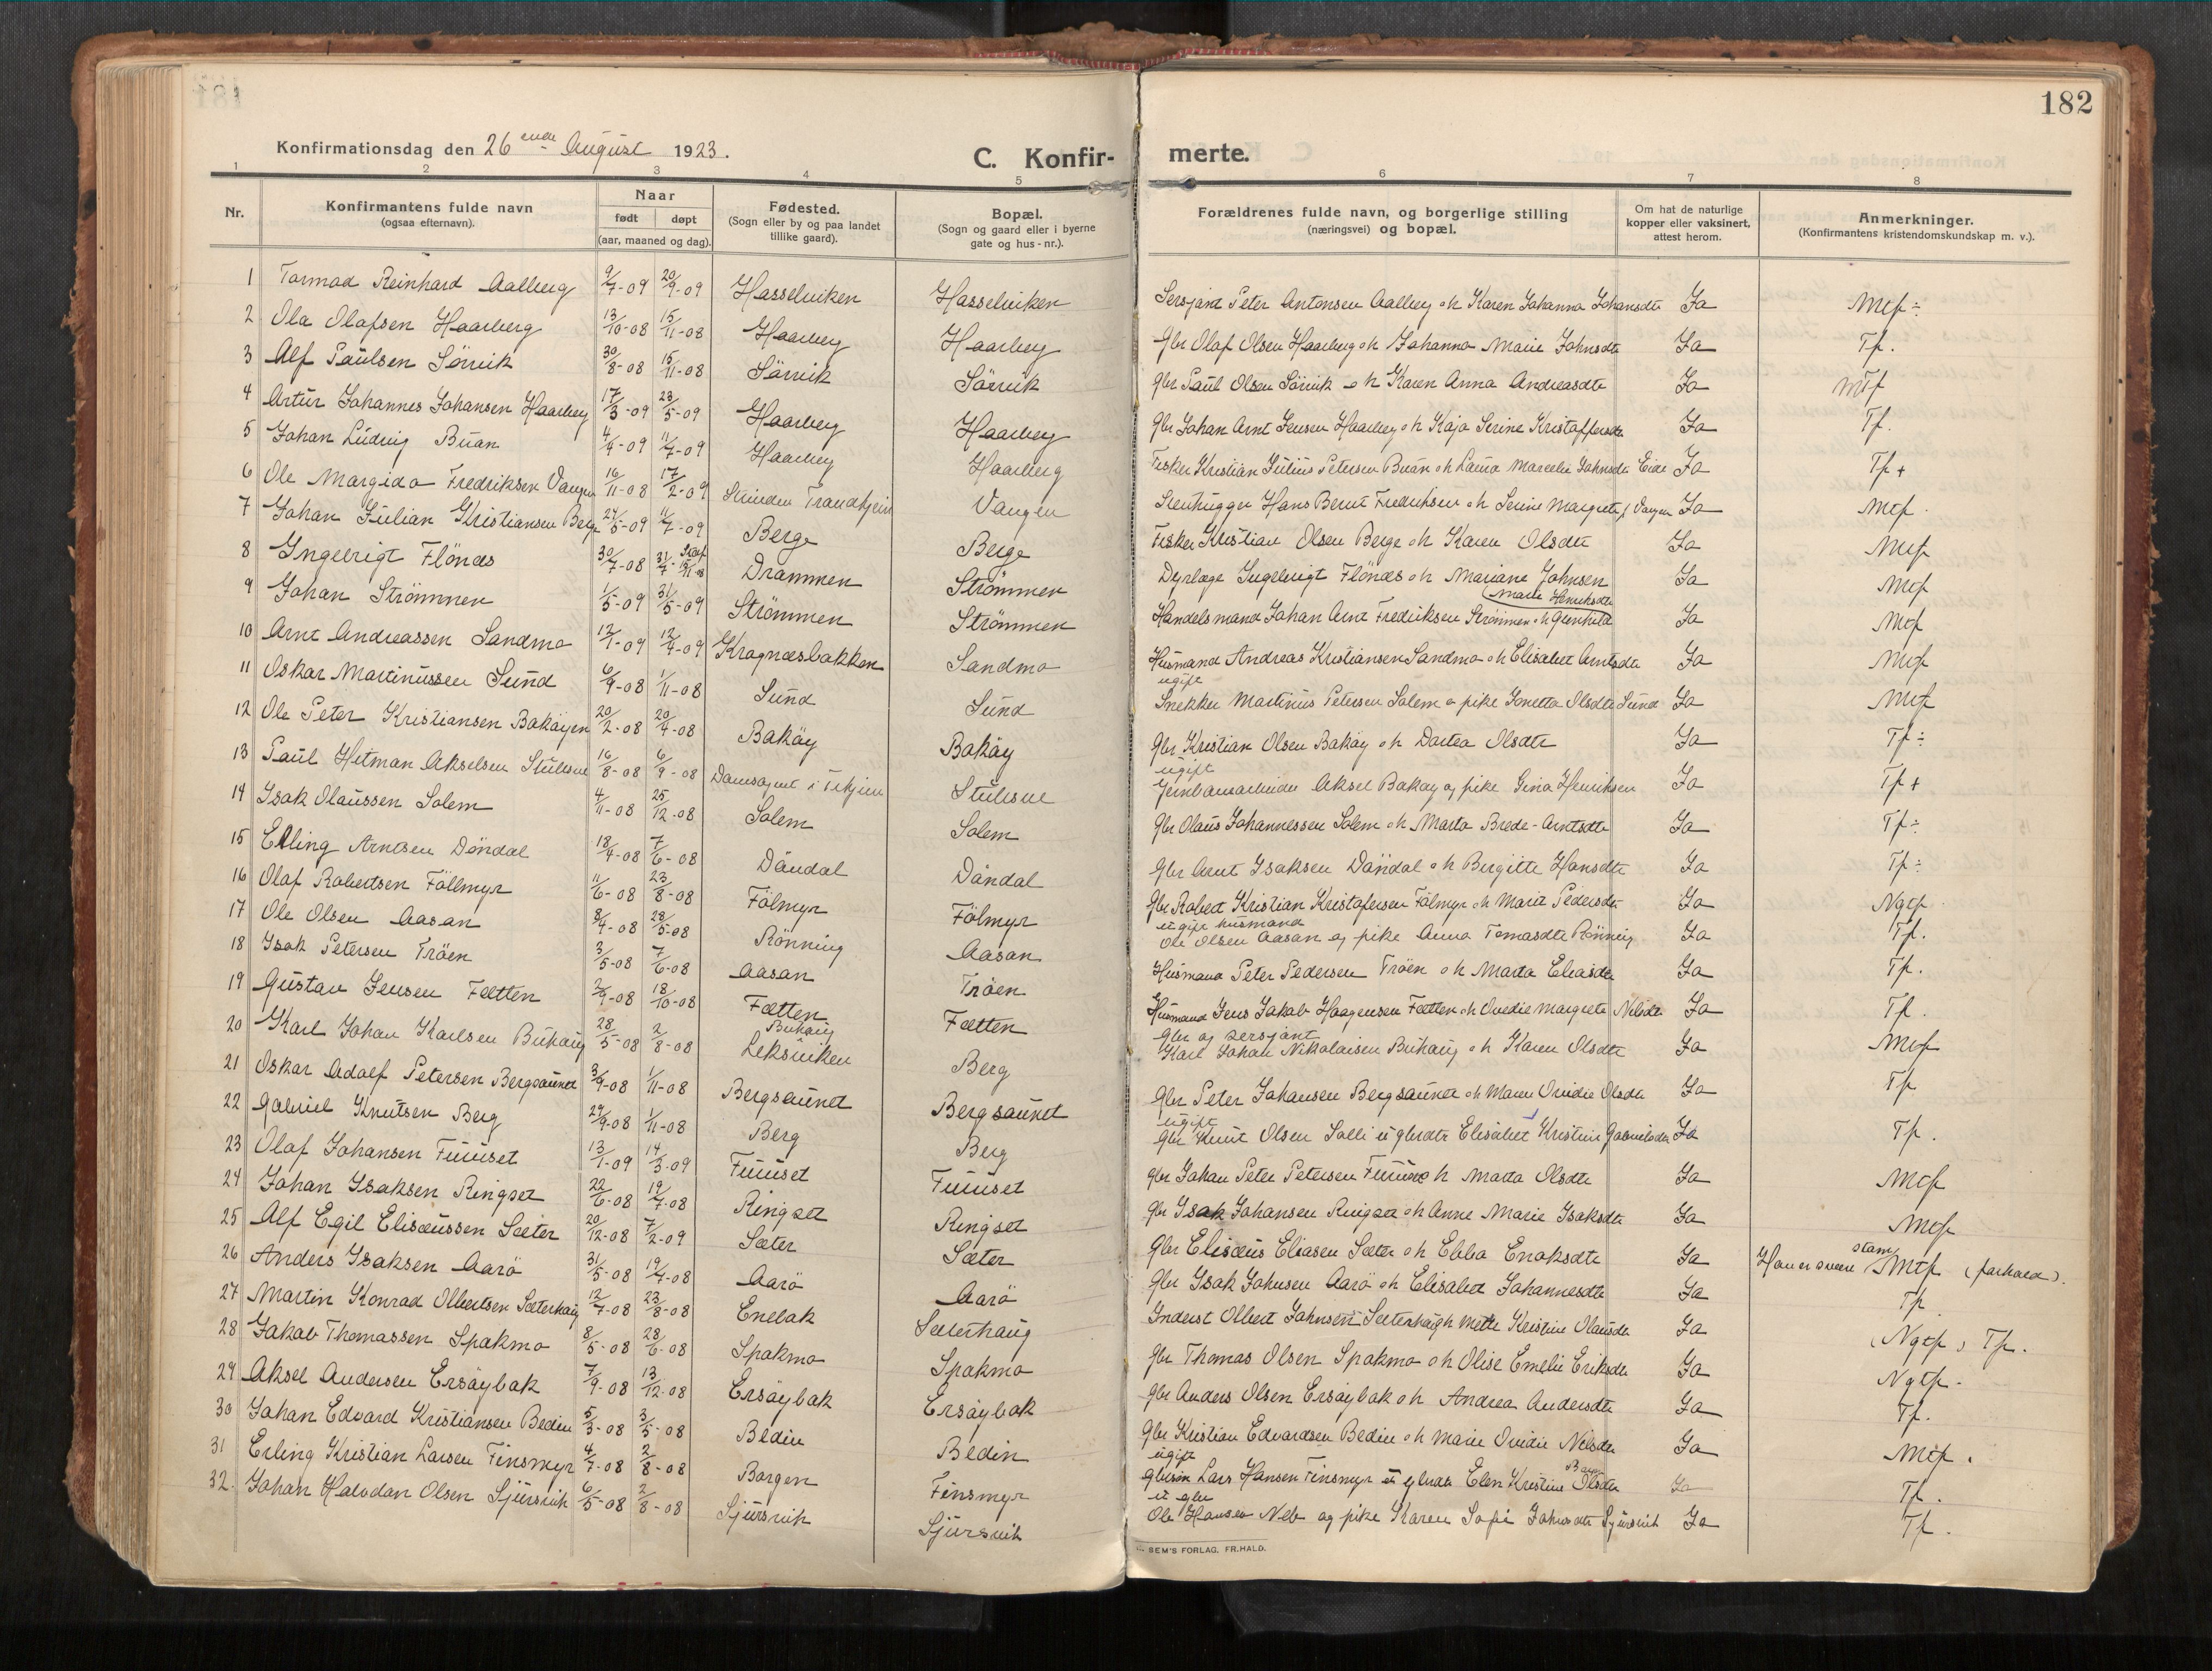 182
Konfirmationsdag den 26 ende August 1923.
C. Konfir- merte.
1 2 3 4 5 6 7 8
Nr. Konfirmantens fulde navn (ogsaa efternavn). Naar født døpt (aar, maaned og dag). Fødested. (Sogn eller by og paa landet tillike gaard). Bopæl. (Sogn og gaard eller i byerne gate og hus-nr.). Forældrenes fulde navn, og borgerlige stilling (næringsvei) og bopæl. Om hat de naturlige kopper eller vaksinert, attest herom. Anmerkninger. (Konfirmantens kristendomskundskap m. v.).
1 Tormod Reinhard Aalberg 9/7-09 20/9-09 Hasselviken Hasselviken Sersjant Peter Antonsen Aalberg o h Karen Johanna Johansdtr Ja Mtf÷
2 Ola Olafsen Haarberg 13/10-08 15/11-08 Haarberg Haarberg Gbr Olaf Olsen Haarberg o h Johanna Marie Johnsdtr Ja Tf.
3 Alf Paulsen Sörvik 30/8-08 15/11-08 Sörvik Sörvik Gbr Paul Olsen Sörvik o h Karen Anna Andreasdtr Ja Mtf
4 Artur Johannes Johansen Haarberg 17/3-09 23/5-09 Haarberg Haarberg Gbr Johan Arnt Jensen Haarberg o h Kaja Serine Kristoffersdtr Ja Tf.
5 Johan Ludvig Buan 4/4-09 11/7-09 Haarberg Haarberg Fisker Kristian Julius Petersen Buan o h Laura Marcelie Johnsdtr Eide Ja Tf +
6 Ole Margido Fredriksen Vangen 16/11-08 17/2-09 Strinden Trondhjem Vangen Stenhugger Hans Bernt Fredriksen o h Serine Margrete Vangen Ja Mtf.
7 Johan Julian Kristiansen Berge 24/5-09 11/7-09 Berge Berge Fisker Kristian Olsen Berge o h Karen Olsdtr Ja Mtf
8 Ingebrigt Flönæs 30/7-08 31/7 Drammen Strömmen Dyrlæge Ingebrigt Flönæs o h Mariane Johnsen Ja Mtf
9 Johan Strömmen 1/5-09 31/5-09 Strömmen Strömmen Handelsmand Johan Arnt Fredriksen Strömmen o h Gunhild Marie Henriksdtr Ja Mtf
10 Arnt Andreassen Sandmo 12/1-09 12/4-09 Kragnæsbakken Sandmo Husmand Andreas Kristiansen Sandmo o h Elisabet Arntsdtr Ja Mtf
11 Oskar Martinussen Sund 6/9-08 1/11-08 Sund Sund ugift Snekker Martinus Petersen Solem o pike Jonetta Olsdtr Sund Ja Mtf
12 Ole Peter Kristiansen Bakøyen 20/2-08 20/4-08 Bakøy Bakøy Gbr Kristian Olsen Bakøy o h Dortea Olsdtr Ja Tf÷
13 Paul Hitman Akselsen 16/8-08 6/9-08 ugift Jernbanearbeider Aksel Bakøy og pike Gina Henriksen Ja Tf +
14 Isak Olaussen Solem 4/11-08 25/12-08 Solem Solem Gbr Olaus Johannessen Solem o h Marta Brede-Arntsdtr Ja Tf÷
15 Erling Arntsen Döndal 18/4-08 7/6-08 Döndal Döndal Gbr Arnt Isaksen Döndal o h Bergitte Hansdtr Ja Tf÷
16 Olaf Robertsen Föllmyr 11/6-08 23/8-08 Fölmyr Fölmyr Gbr Robert Kristian Kristofersen Fölmyr o h Marit Pedersdtr Ja Ngtf
17 Ole Olsen Aasan 8/4-08 28/5-08 Rönning Aasan ugift husmand Ole Olsen Aasan og pike Anna Tomasdtr Rönning Ja Tf.
18 Isak Petersen Tröen 3/5-08 7/6-08 Aasan Tröen Husmand Peter Pedersen Tröen o h Marta Eliasdtr Ja Tf.
19 Gustav Jensen Fætten 2/9-08 18/10-08 Fætten Fætten Husmand Jens Jakob Haagensen Fætten o h Ovedie Margrete Nilsdtr Ja Tf.
20 Karl Johan Karlsen Buhaug 28/5-08 2/8-08 Buhaug Leksviken Berg Gbr og sersjant Karl Johan Nikolaisen Buhaug o h Karen Olsdtr Ja Mtf
21 Oskar Adolf Petersen Bergsaunet 3/9-08 1/11-08 Bergsaunet Bergsaunet Gbr Peter Johansen Bergsaunet o h Maren Ovidie Olsdtr Ja Tf
22 Gabriel Knutsen Berg 29/9-08 1/11-08 Berg Berg ugift Gbr Knut Olsen Solli u gbrdtr Elisabet Kristine Gabrielsdtr Ja Tf.
23 Olaf Johansen Fuuset 13/1-09 14/3-09 Fuuset Fuuset Gbr Johan Peter Petersen Fuuset o h Marta Olsdtr Ja Mtf
24 Johan Isaksen Ringset 22/6-08 19/7-08 Ringset Ringset Gbr Isak Johansen Ringset o h Anne Marie Isaksdtr Ja Mtf
25 Alf Egil Elisæussen Sæter 20/12-08 7/2-09 Sæter Sæter Gbr Elisæus Eliasen Sæter o h Ebba Enoksdtr Ja Han er svær stam Mtf (forhold).
26 Anders Isaksen Aarö 31/5-08 19/7-08 Aarö Aarö Gbr Isak Johnsen Aarö o h Elisabet Johannesdtr Ja Tf
27 Martin Konrad Olbertsen Sæterhaug 12/7-08 23/8-08 Enebak Sæterhaug Inderst Olbert Johnsen Sæterhaug h Mette Kristine Olausdtr Ja (Ngtf) Tf.
28 Jakob Thomassen Spakmo 8/5-08 28/6-08 Spakmo Spakmo Gbr Thomas Olsen Spakmo o h Olise Emelie Eriksdtr Ja Ngtf.
29 Aksel Andersen Ersøybak 7/9-08 13/12-08 Ersøybak Ersøybak Gbr Anders Olsen Ersøybak o h Andrea Andersdtr Ja Tf.
30 Johan Edvard Kristiansen Bedin 5/3-08 3/5-08 Bedin Bedin Gbr Kristian Edvardsen Bedin o h Marie Ovidie Nilsdtr Ja Mtf.
31 Erling Kristian Larsen Finsmyr 4/7-08 2/8-08 Borgen Finsmyr ugift gbrsøn Lars Hansen Finsmyr Elen Kristine Olsdtr Ja Tf.
32. Johan Halvdan Olsen Sjursvik 6/5-08 2/8-08 Sjursvik Sjursvik Ole Hansen og pike Karen Sofi Johnsdtr Sjursvik Ja Tf.
SEM'S FORLAG, FR.HALD.